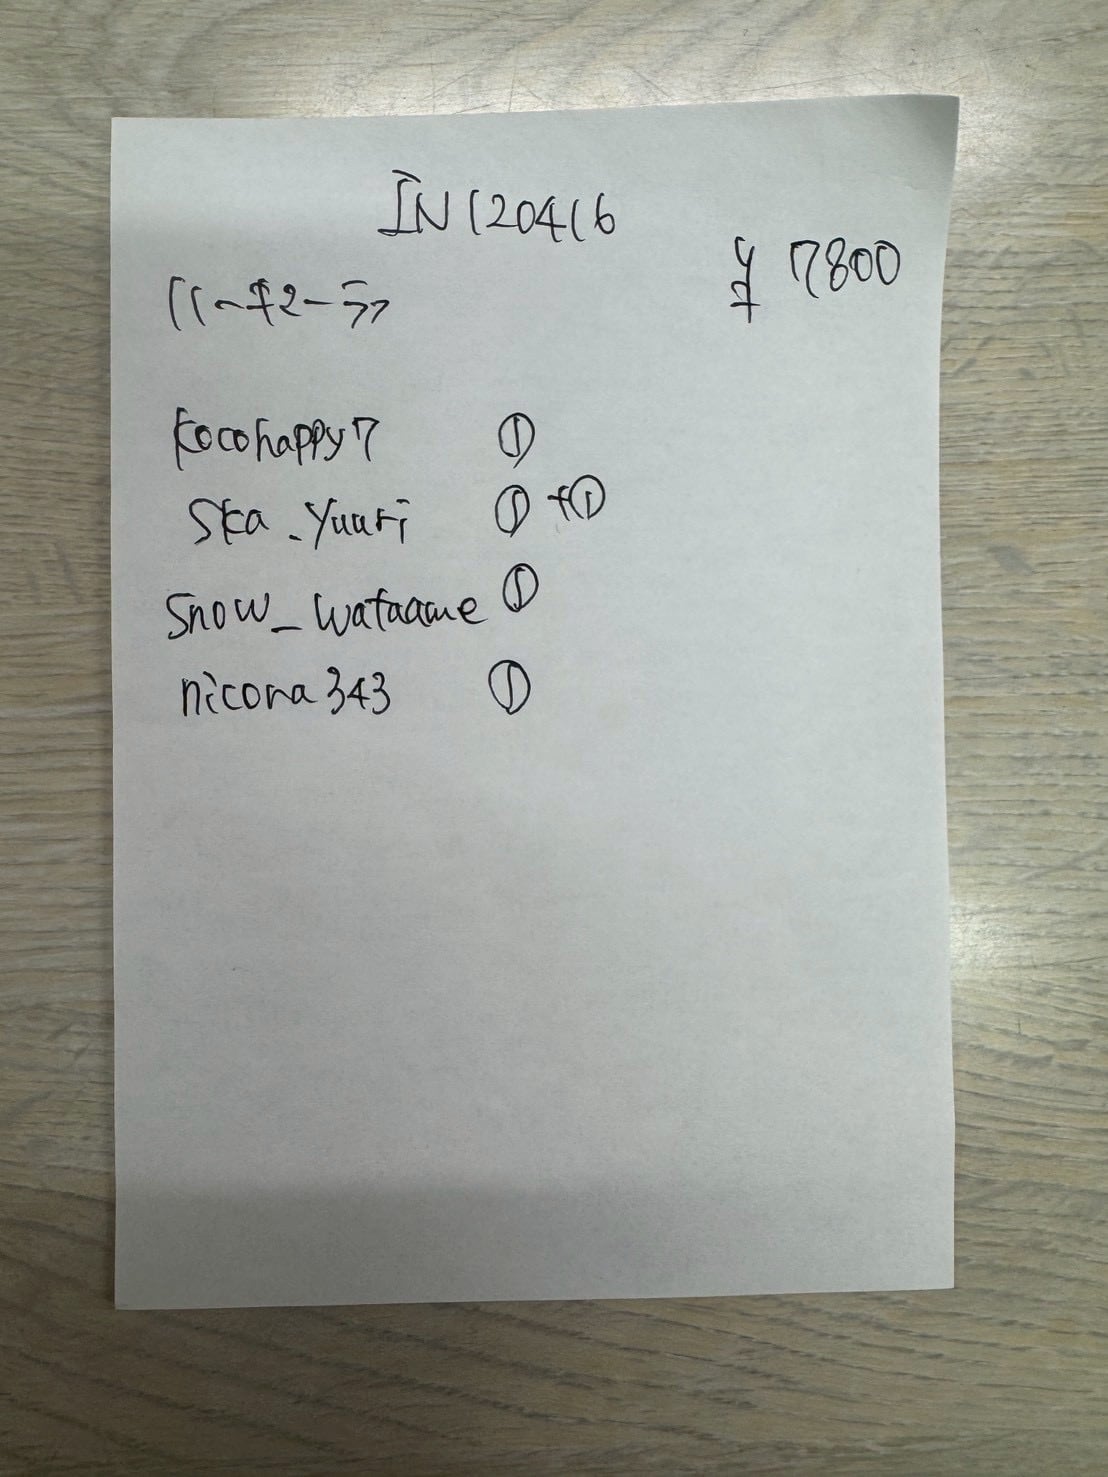 IN120416
¥ 7800
kocohappy7 ①
ska_yuuri ① +①
snow_wataame ①
nicora343 ①